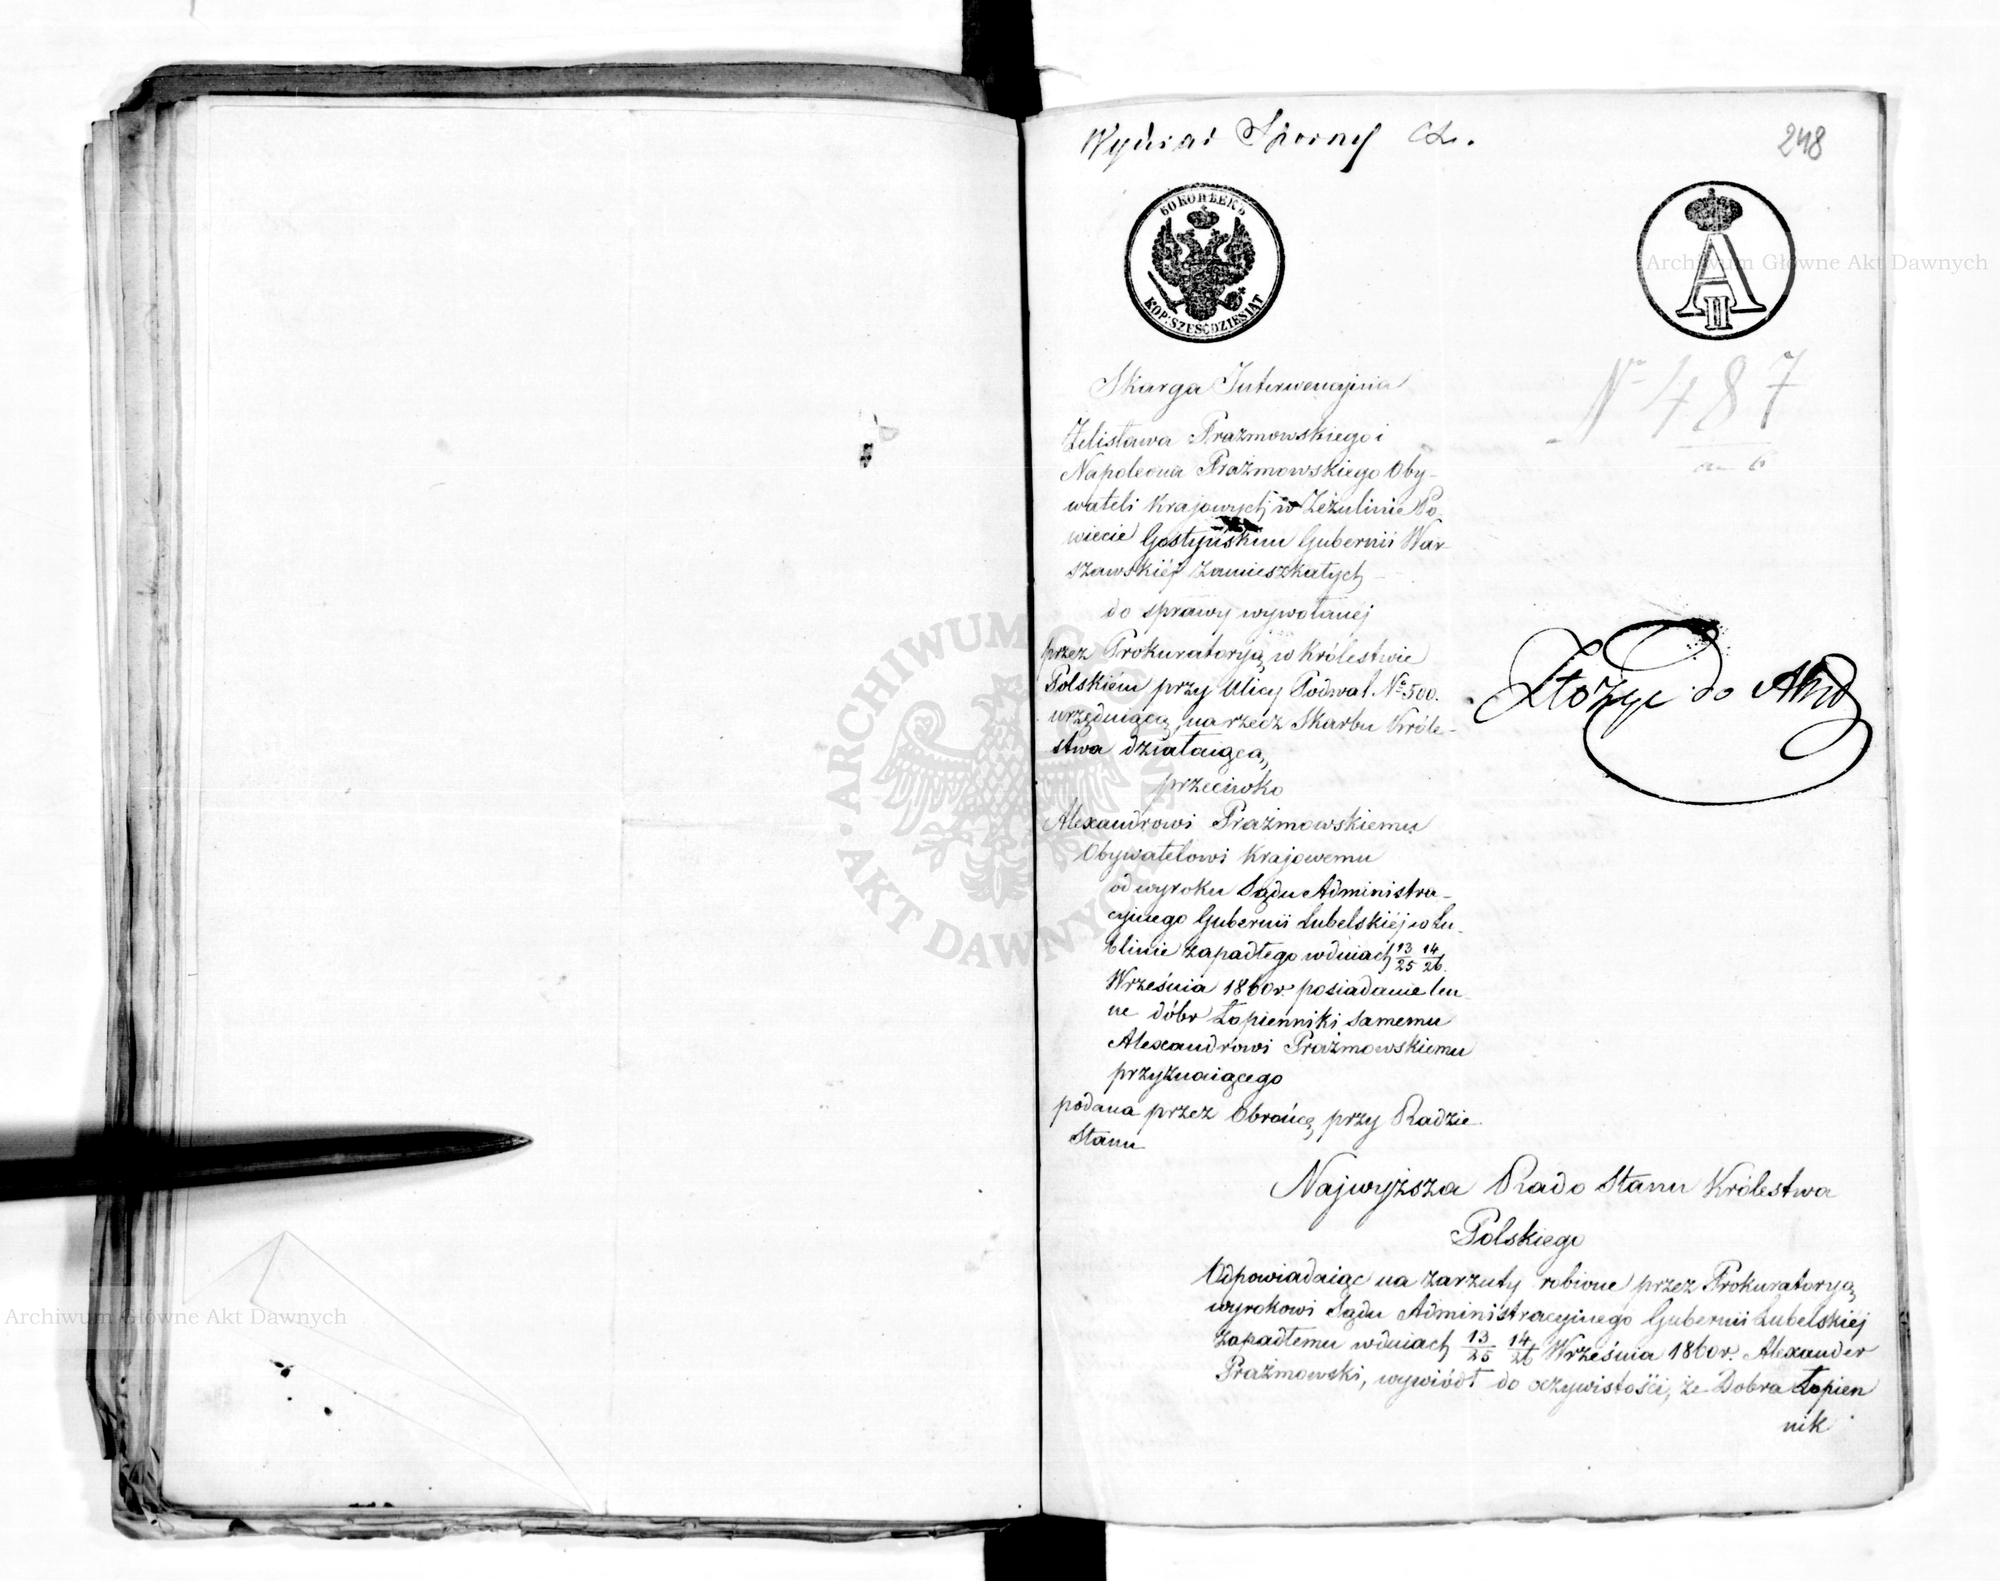 Wydział Sporny
248
60 КОПѢЕКЪ
KOP: SZEŚĆDZIESIĄT
A II
Skarga Interwencyjna
Nº 487
Zdzisława Prażmowskiego i
Napoleona Prażmowskiego Oby-
wateli Krajowych w Zézulinie Po-
wiecie Gostyńskim Gubernii War-
szawskiéj zamieszkałych
do sprawy wywołanej
przez Prokuratoryą w Królestwie
Polskiém przy Ulicy Podwal. Nº 500.
urzędniącą, na rzecz Skarbu Króle-
stwa działaiącą,
Złożyć do Akt
przeciwko
Alexandrowi Prażmowskiemu
Obywatelowi Krajowemu
od wyroku Sądu Administra-
cyjnego Gubernii Lubelskiéj w Lu-
blinie zapadłego w dniach 13/25 14/26
Września 1860 r. posiadanie len-
ne dóbr Łopienniki samemu
Alexandrowi Prażmowskiemu
przyznaiącego
podana przez Obrońcę przy Radzie
Stanu
Najwyższa Rado Stanu Królestwa
Polskiego
Odpowiadaiąc na zarzuty robione przez Prokuratoryą
wyrokowi Sądu Administracyjnego Gubernii Lubelskiéj
zapadłemu w dniach 13/25 14/26 Września 1860 r. Alexander
Prażmowski, wywiódł do oczywistości, że Dobra Łopien
nik
ARCHIWUM GŁÓWNE AKT DAWNYCH
Archiwum Główne Akt Dawnych
Archiwum Główne Akt Dawnych